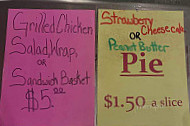 Grilled Chicken
Salad Wraps
OR
Sandwich Basket
$5.00
Strawberry
Cheesecake
OR
Peanut Butter
Pie
$1.50 a slice